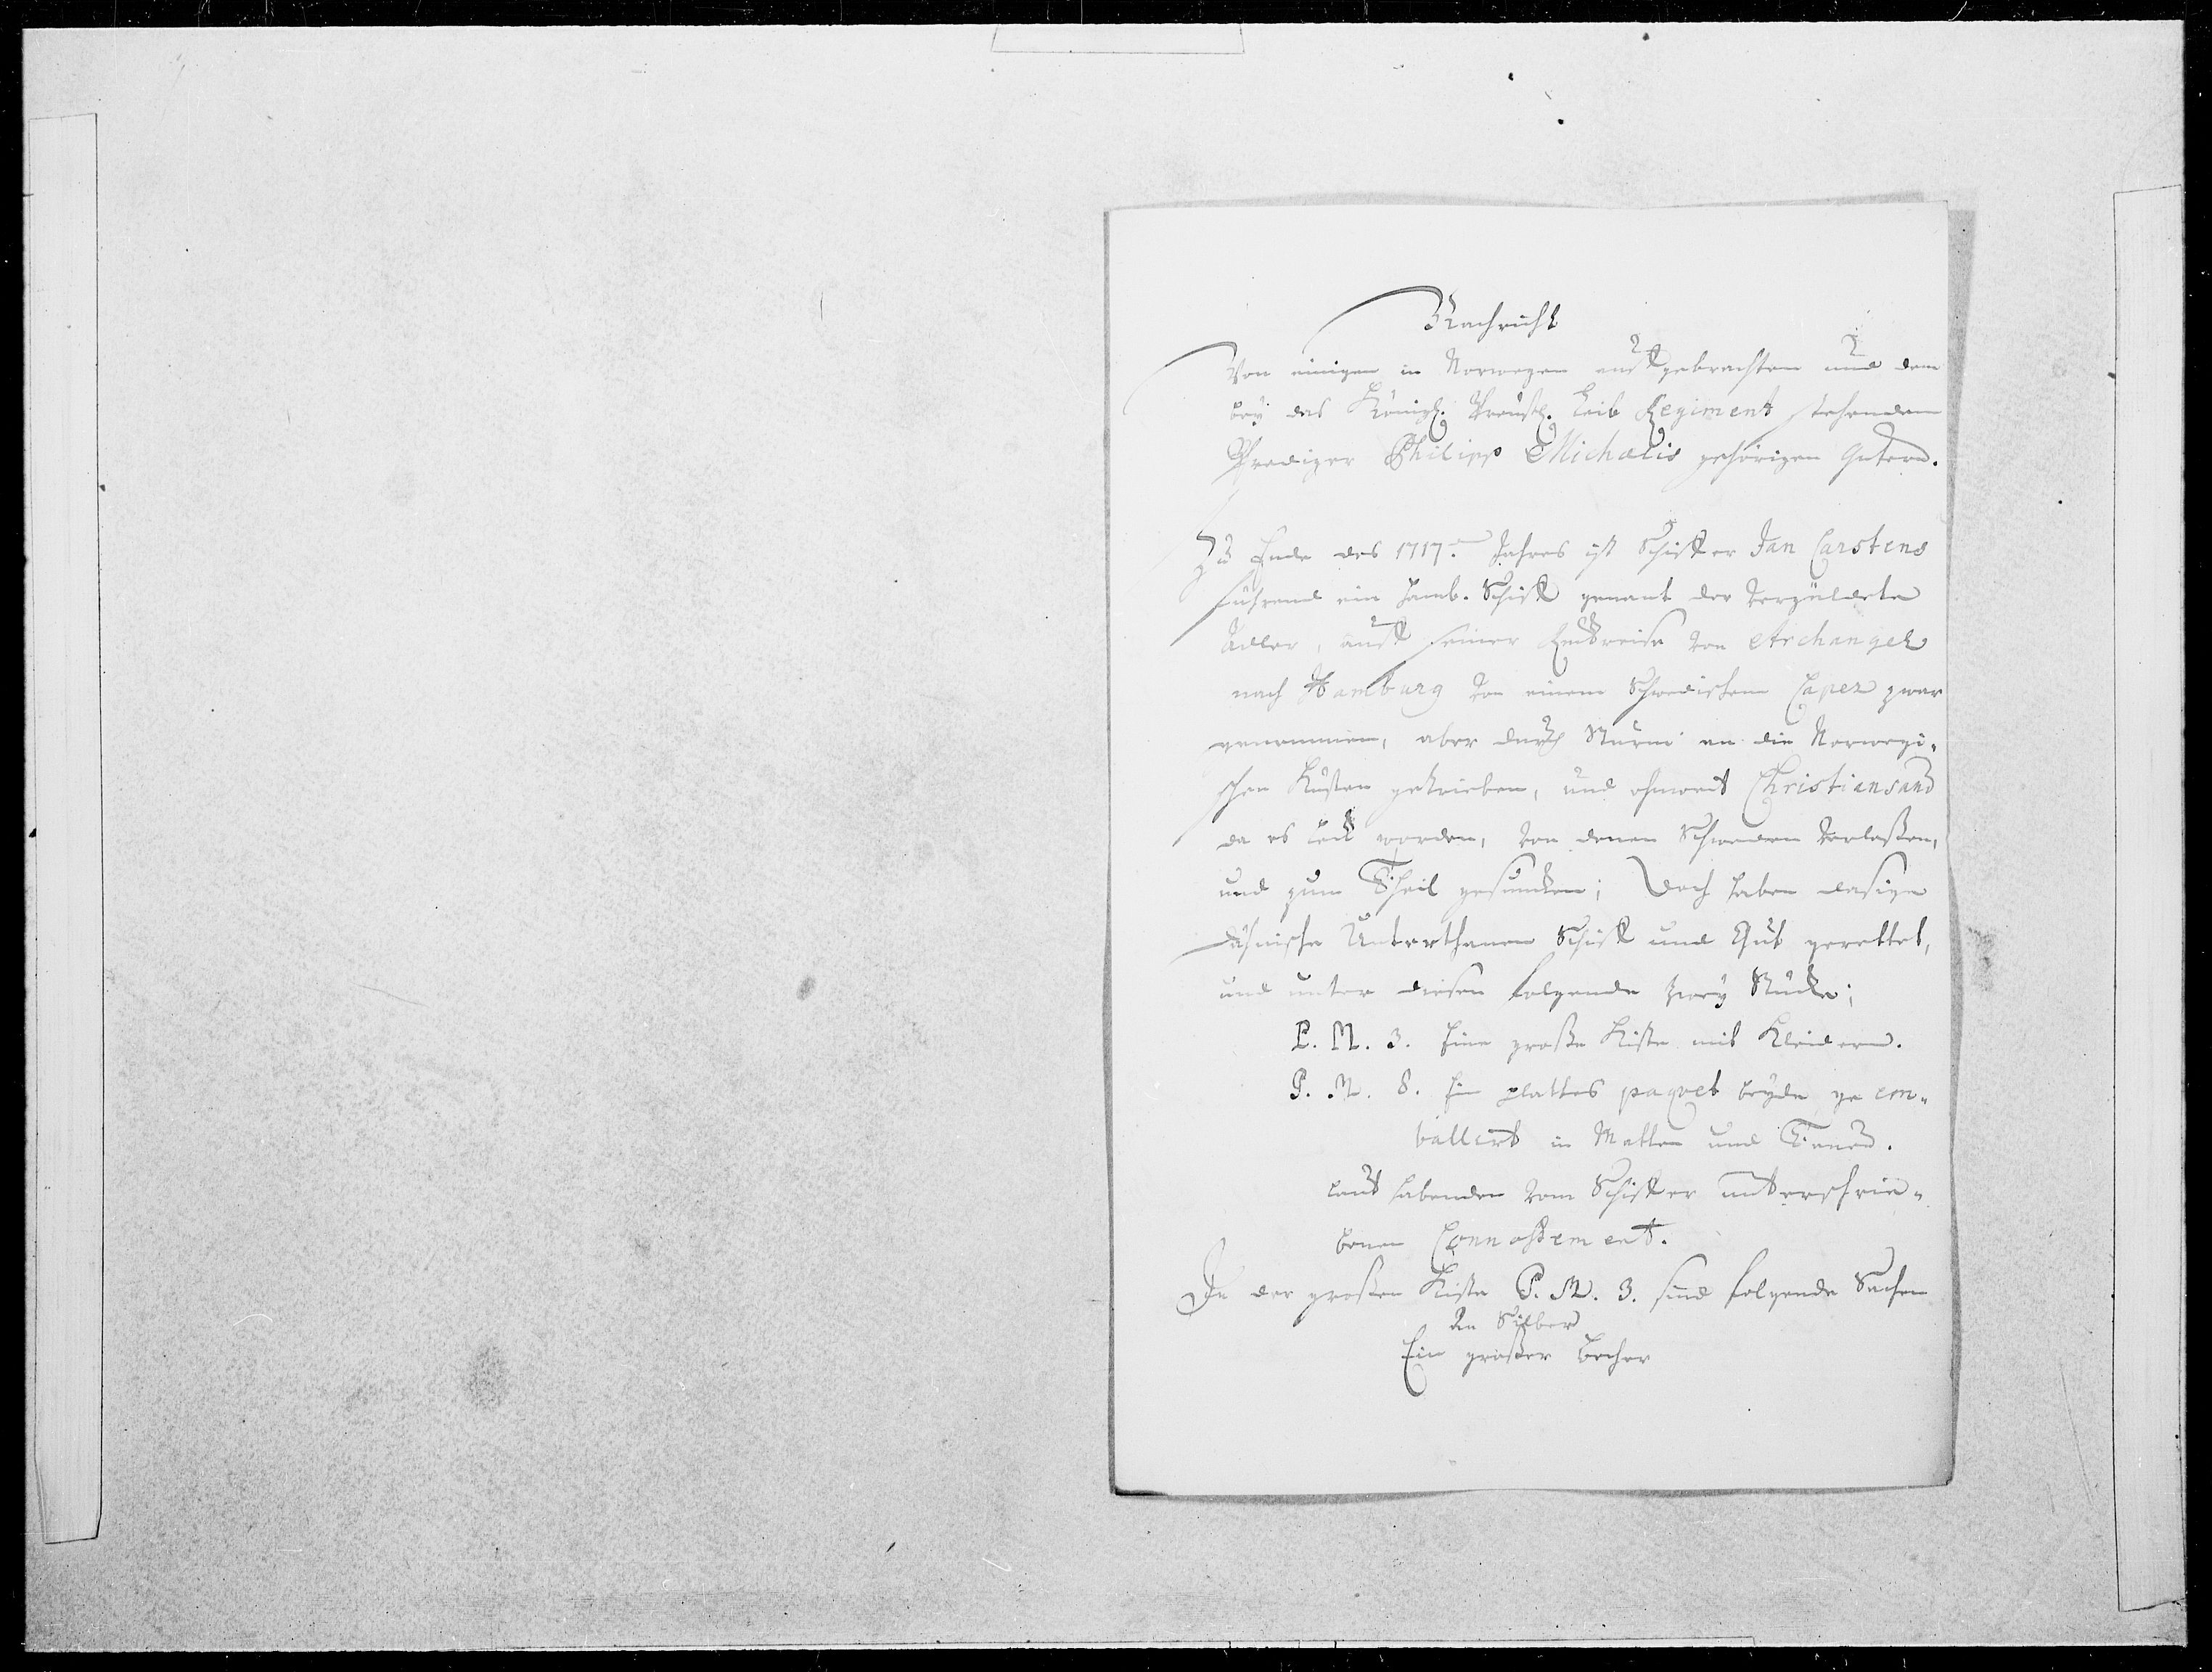 Nachricht
Von einigen in Norwegen auffgebrachten und dem
bey das Königl. Preußl. Leib Regiment stehendem
Prediger Philipp Michaelis gehörigen Gutern.
Zu Ende des 1717. Jahres ist Schiffer Jan Carstens
führend ein Hamb. Schiff genant der vergüldete
Adler, auff seiner Rückreise von Archangel
nach Hamburg von einem Schwedischem Caper zwar
genommen, aber durch Sturm an die Norwegi-
schen Küsten getrieben, und ohnweit Christiansand
da es leck worden, von denen Schweden verlaßen,
und zum Theil gesuncken; Doch haben dasige
Dähnische Unterthanen Schiff und Gut gerettet,
und unter diesen folgende zwey Stücke;
P. M. 3. Eine große Kiste mit Kleidern.
P. M. 8. Ein plattes paqvet beyde ge em-
ballirt in Matten und
laut habenden vom Schiffer unterschrie-
benen Connoßement.
In der großen Kiste P. M. 3. sind folgende Sachen
An Silber
Ein großer Becher